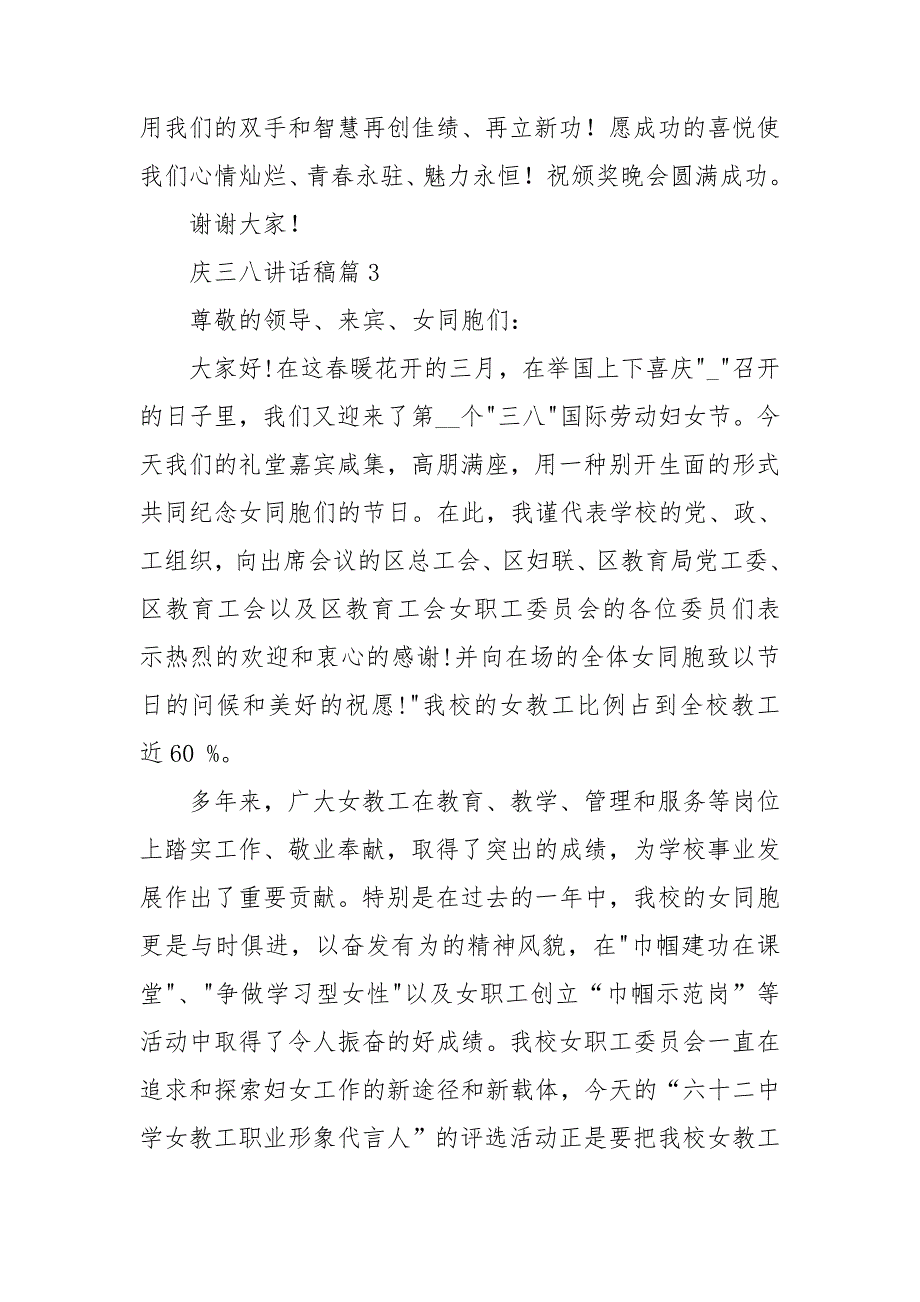 用我们的双手和智慧再创佳绩、再立新功！愿成功的喜悦使
我们心情灿烂、青春永驻、魅力永恒！祝颁奖晚会圆满成功。
谢谢大家！
庆三八讲话稿篇3
尊敬的领导、来宾、女同胞们：
大家好!在这春暖花开的三月，在举国上下喜庆"_"召开
的日子里，我们又迎来了第__个"三八"国际劳动妇女节。今
天我们的礼堂嘉宾咸集，高朋满座，用一种别开生面的形式
共同纪念女同胞们的节日。在此，我谨代表学校的党、政、
工组织，向出席会议的区总工会、区妇联、区教育局党工委、
区教育工会以及区教育工会女职工委员会的各位委员们表
示热烈的欢迎和衷心的感谢!并向在场的全体女同胞致以节
日的问候和美好的祝愿!"我校的女教工比例占到全校教工
近60 %。
多年来，广大女教工在教育、教学、管理和服务等岗位
上踏实工作、敬业奉献，取得了突出的成绩，为学校事业发
展作出了重要贡献。特别是在过去的一年中，我校的女同胞
更是与时俱进，以奋发有为的精神风貌，在"巾帼建功在课
堂"、"争做学习型女性"以及女职工创立“巾帼示范岗”等
活动中取得了令人振奋的好成绩。我校女职工委员会一直在
追求和探索妇女工作的新途径和新载体，今天的“六十二中
学女教工职业形象代言人”的评选活动正是要把我校女教工